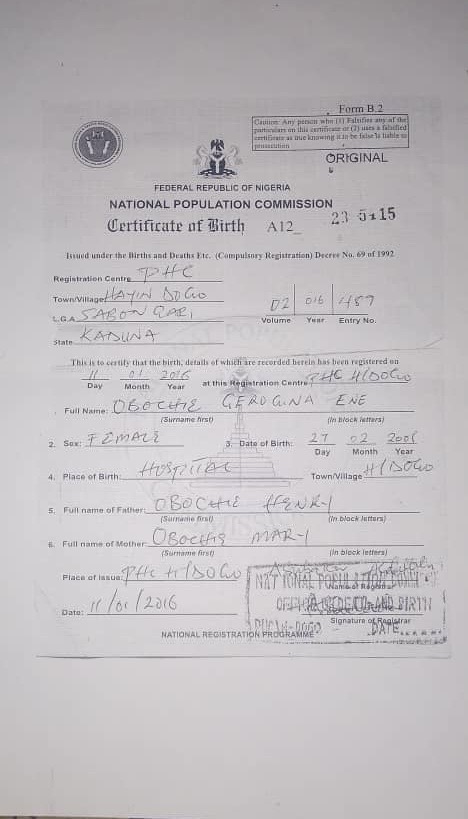 Form B.2
Caution: Any person who (1) Falsifies any of the
particulars on this certificate or (2) uses a falsified
certificate as true knowing it to be false is liable to
prosecution
ORIGINAL
FEDERAL REPUBLIC OF NIGERIA
NATIONAL POPULATION COMMISSION
Certificate of Birth A12_
Issued under the Births and Deaths Etc. (Compulsory Registration) Decree No. 69 of 1992
Registration Centre PHC
Town/Village HAYIN DOGO
L.G.A SABON GARI
02 016 487
Volume Year Entry No.
State KADUNA
This is to certify that the birth, details of which are recorded herein has been registered on
11 01 2016 at this Registration Centre PHC H/DOGO
Day Month Year
Full Name: OBOCHE GEROGINA ENE
(Surname first) (In block letters)
2. Sex: FEMALE 3. Date of Birth: 27 02
Day Month Year
4. Place of Birth: HOSPITAL Town/Village H/DOGO
5. Full name of Father: OBOCHE HENRY
(Surname first) (In block letters)
6. Full name of Mother: OBOCHE MARY
(Surname first) (In block letters)
Place of Issue: PHC H/DOGO
NATIONAL POPULATION
Date: 11/01/2016
Signature of Registrar
DATE
NATIONAL REGISTRATION PROGRAMME